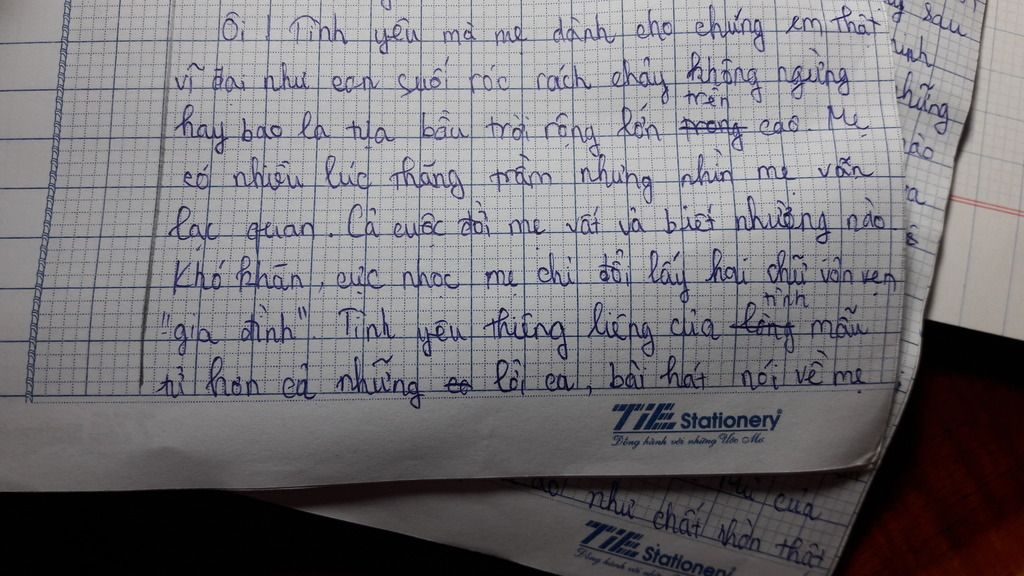 Ôi! Tình yêu mà mẹ dành cho chúng em thật
vĩ đại như con suối róc rách chảy không ngừng
hay bao la tựa bầu trời rộng lớn trên cao. Mẹ
có nhiều lúc thăng trầm nhưng nhìn mẹ vẫn
lạc quan. Cả cuộc đời mẹ vất vả biết nhường nào
khó khăn, cực nhọc mẹ chỉ đổi lấy hai chữ vỏn vẹn
"gia đình". Tình yêu thiêng liêng của tình mẫu
tử hơn cả những lời ca, bài hát nói về mẹ
TiE Stationery
Đồng hành với những Ước Mơ
sau
những
của
như chất nhờn thật
TiE Stationery